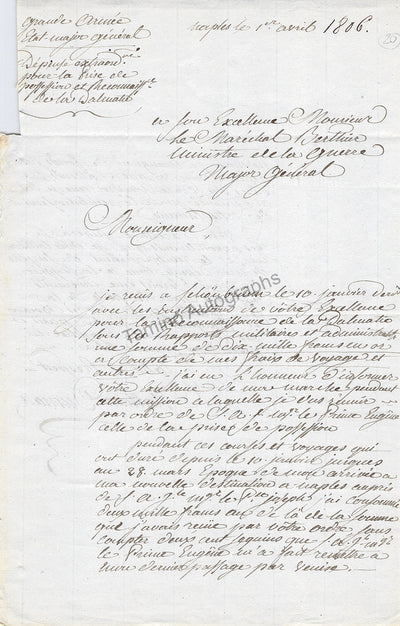 Grande Armée
Etat major général
Dépense extraord.re
pour la prise de
possession et Reconnaiss.ce
de la Dalmatie
Naples le 1er avril 1806.
20
a son Excellence Monsieur
Le Maréchal Berthier
Ministre de la Guerre
Major Général
Monseigneur,
je reçus a Schönbrunn le 10 janvier der
avec les instructions de votre Excellence
pour la Reconnaissance de la Dalmatie
sous les rapports militaires et administratifs
une somme de Dix mille francs en or
a compte de mes frais de voyage et
autres. j'ai eu l'honneur d'informer
votre Excellence de ma marche pendant
cette mission a laquelle je dus réunir
par ordre de S. A. I. mgr le Prince Eugène
celle de la prise de possession
pendant ces courses et voyages qui
ont duré depuis le 10 janvier jusques
au 28 mars Epoque de mon arrivée a
ma nouvelle destination a Naples auprès
de S. A. I.le mgr le P.ce joseph j'ai consommé
deux mille francs au de là de la somme
que j'avais reçut par votre ordre sans
compter deux cent sequins que S. A. I.le mgr
le Prince Eugène m'a fait remettre a
mon dernier passage par Venise.
Tamino Autographs